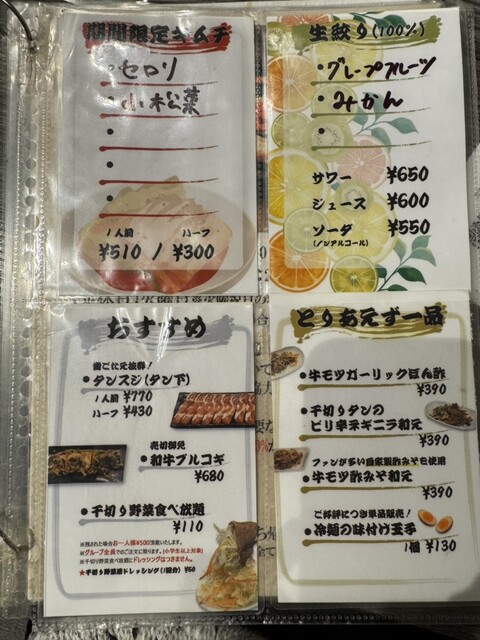 期間限定キムチ
・セロリ
・小松菜
・
・
・
1人前 ハーフ
¥510 / ¥300
生絞り(100%)
・グレープフルーツ
・みかん
・
サワー ¥650
ジュース ¥600
ソーダ ¥550
(ノンアルコール)
おすすめ
歯ごたえ抜群!
・タンスジ(タン下)
1人前 ¥770
ハーフ ¥430
売切御免
・和牛プルコギ
¥680
・千切り野菜食べ放題
¥110
※残された場合お一人様¥500頂戴いたします。
※グループ全員でのご注文に限ります。(小学生以上対象)
※千切り野菜食べ放題にドレッシングはつきません。
★千切り野菜用ドレッシング(1個分) ¥60
とりあえず一品
・牛モツガーリックぽん酢
¥390
・千切りタンの
ピリ辛ネギニラ和え
¥390
ファンが多い自家製酢みそを使用
・牛モツ酢みそ和え
¥390
ご好評につき単品販売!
・冷麺の味付け玉子
1個 ¥130